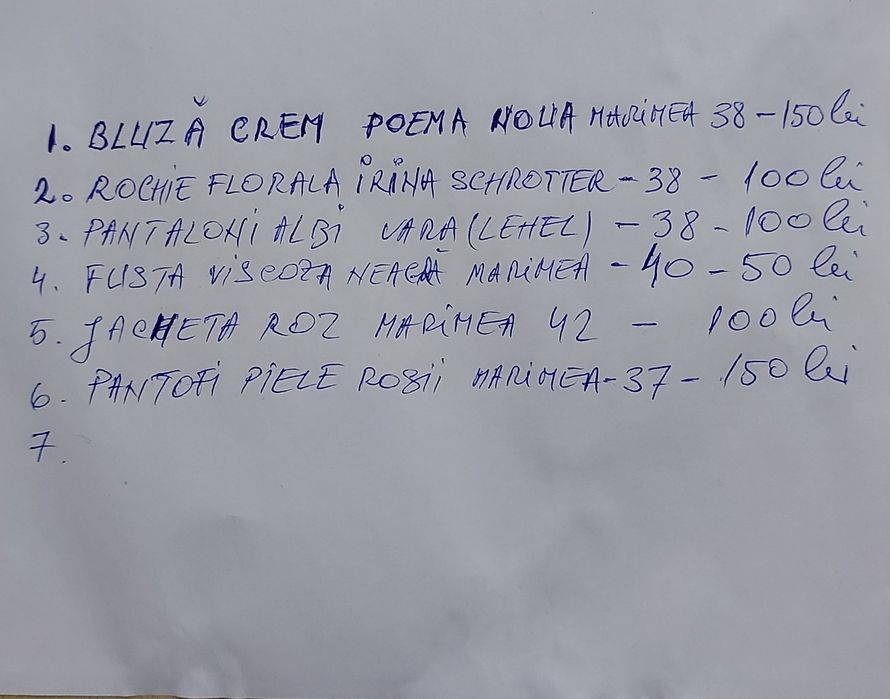 1. BLUZĂ CREM POEMA NOUA MARiMEA 38 - 150 lei
2. ROCHiE FLORALA iRiNA SCHROTTER - 38 - 100 lei
3. PANTALONi ALBi VARA (LEHEL) - 38 - 100 lei
4. FUSTA ViSCOZA NEAGRĂ MARiMEA - 40 - 50 lei
5. JACHETA ROZ MARiMEA 42 - 100 lei
6. PANTOFi PiELE ROSii MARiMEA - 37 - 150 lei
7.